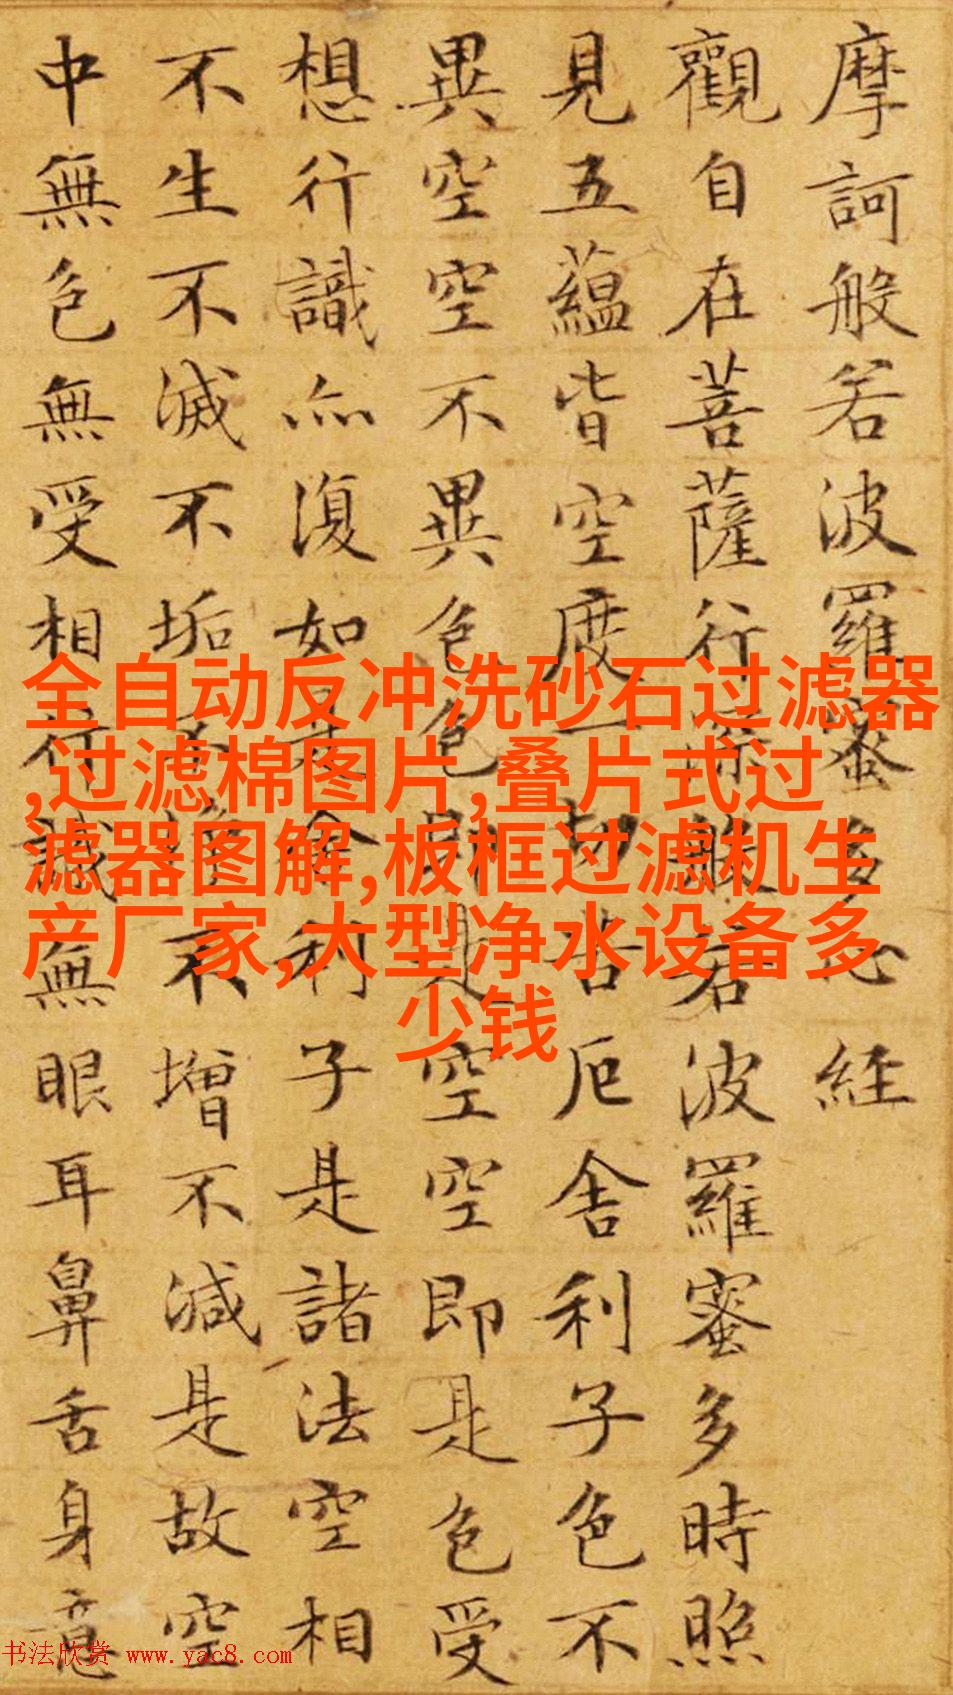 摩訶般若波羅蜜多心經
觀自在菩薩行深般若波羅蜜多時照
見五蘊皆空度一切苦厄舍利子色不
異空空不異色色即是空空即是色受
想行識亦復如是舍利子是諸法空相
不生不滅不垢不淨不增不減是故空
中無色無受相行識無眼耳鼻舌身意
全自动反冲洗砂石过滤器
,过滤棉图片,叠片式过
滤器图解,板框过滤机生
产厂家,大型净水设备多
少钱
书法欣赏 www.yac8.com